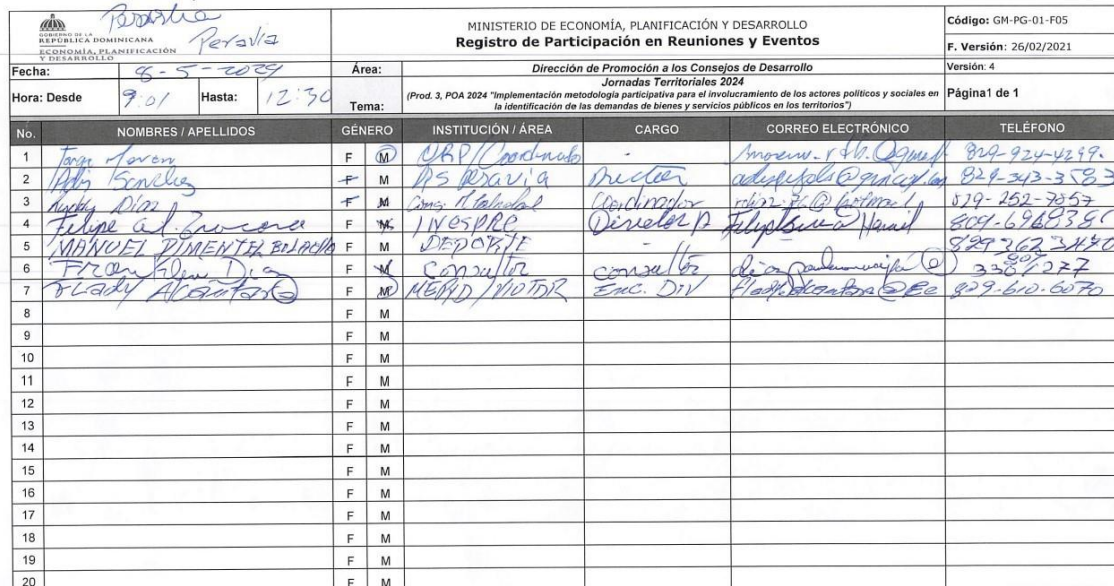 Peravia
GOBIERNO DE LA
REPÚBLICA DOMINICANA
ECONOMÍA, PLANIFICACIÓN
Y DESARROLLO
MINISTERIO DE ECONOMÍA, PLANIFICACIÓN Y DESARROLLO
Registro de Participación en Reuniones y Eventos
Código: GM-PG-01-F05
F. Versión: 26/02/2021
Versión: 4
Página1 de 1
Fecha: 8-5-2024 Área: Dirección de Promoción a los Consejos de Desarrollo
Hora: Desde 9:01 Hasta: 12:30 Tema: Jornadas Territoriales 2024
(Prod. 3, POA 2024 "Implementación metodología participativa para el involucramiento de los actores políticos y sociales en
la identificación de las demandas de bienes y servicios públicos en los territorios")
No. NOMBRES / APELLIDOS GÉNERO INSTITUCIÓN / ÁREA CARGO CORREO ELECTRÓNICO TELÉFONO
1 F M - 829-924-4299.
2 F M Peravia Director 829-343-3583
3 Díaz F M Coordinador 829-252-7857
4 Felipe F M INESPRE
5 MANUEL PIMENTEL F M DEPORTE 8293623470
6 Díaz F M Consultor consultor 3301277
7 Flady Alcántara F M MEPYD / VIOTDR Enc. DIV 809-610-6070
8 F M
9 F M
10 F M
11 F M
12 F M
13 F M
14 F M
15 F M
16 F M
17 F M
18 F M
19 F M
20 F M